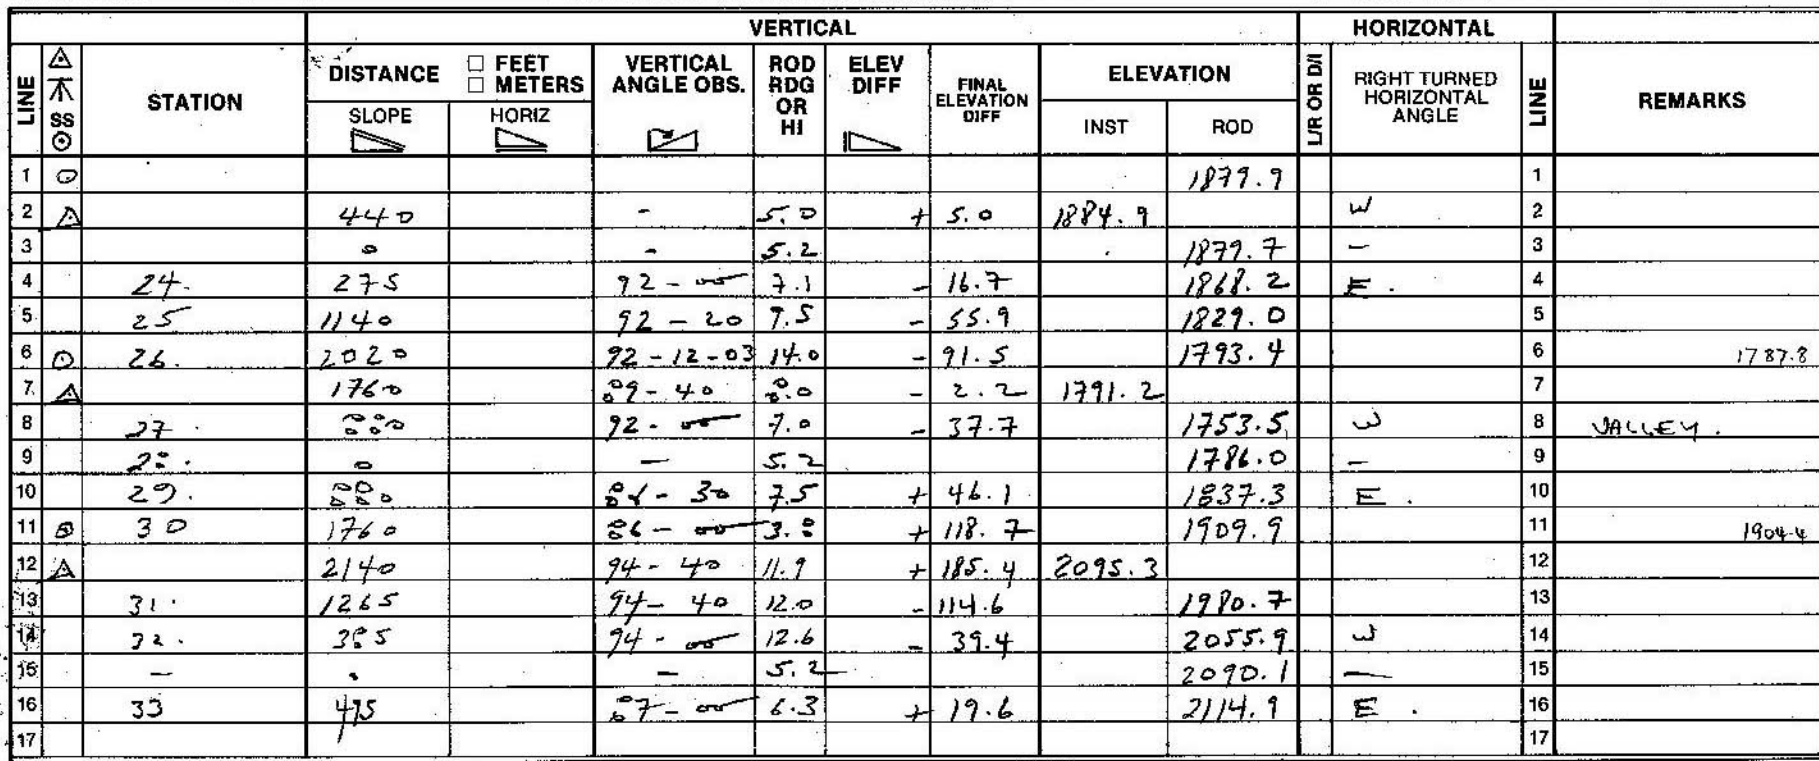 VERTICAL HORIZONTAL
LINE SS STATION DISTANCE □ FEET □ METERS SLOPE HORIZ VERTICAL ANGLE OBS. ROD RDG OR HI ELEV DIFF FINAL ELEVATION DIFF ELEVATION INST ROD L/R OR D/I RIGHT TURNED HORIZONTAL ANGLE LINE REMARKS
1 1879.9 1
2 440 - 5.0 + 5.0 1884.9 W 2
3 0 - 5.2 1879.7 - 3
4 24. 275 92-00 7.1 - 16.7 1868.2 E. 4
5 25 1140 92-20 9.5 - 55.9 1829.0 5
6 26. 2020 92-12-03 14.0 - 91.5 1793.4 6 1787.8
7 1760 89-40 8.0 - 2.2 1791.2 7
8 27. 880 92-00 7.0 - 37.7 1753.5 W 8 VALLEY.
9 28. 0 - 5.2 1786.0 - 9
10 29. 880 86-30 7.5 + 46.1 1837.3 E. 10
11 30 1760 86-00 3.8 + 118.7 1909.9 11 1904.4
12 2140 94-40 11.9 + 185.4 2095.3 12
13 31. 1265 94-40 12.0 - 114.6 1980.7 13
14 32. 385 94-00 12.6 - 39.4 2055.9 W 14
15 - . - 5.2 2090.1 - 15
16 33 87-00 6.3 + 19.6 2114.9 E. 16
17 17